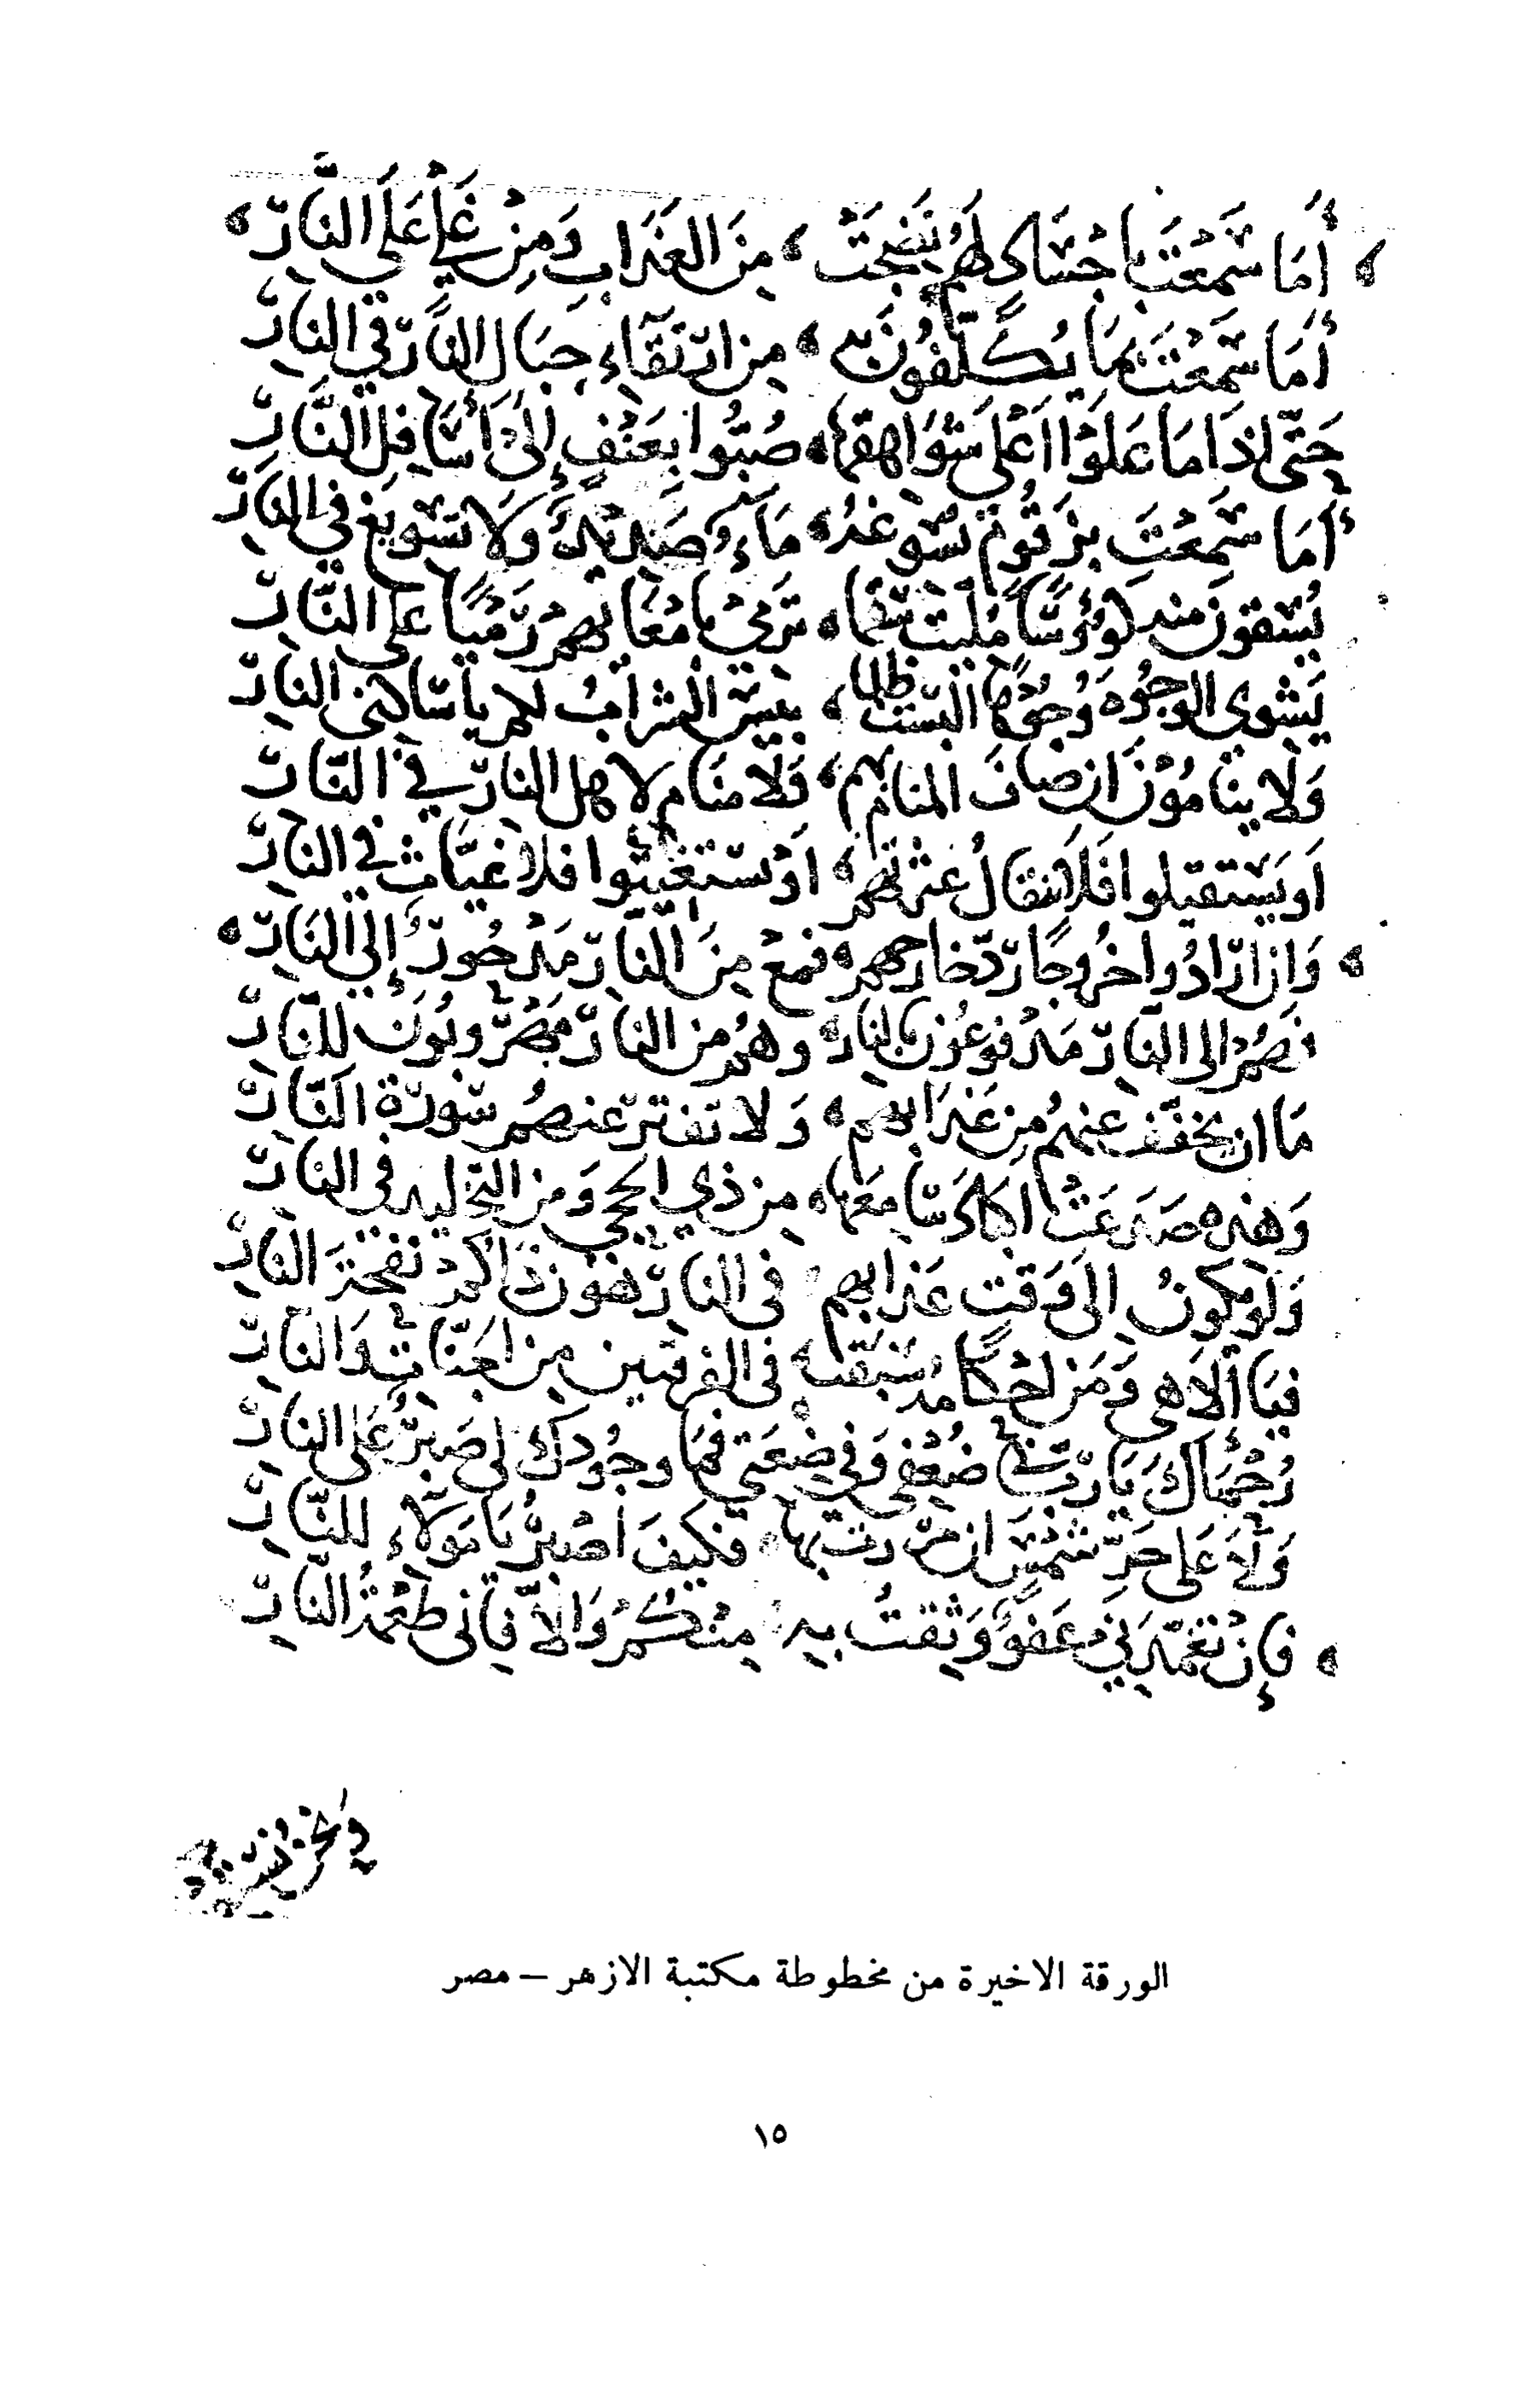 أَمَا سَمِعْتَ بِأجْسَادٍ لَهُمْ نَضِجَتْ ، مِنَ الْعَذَابِ وَمِنْ غَلْيٍ عَلَى النَّارِ ،
أَمَا سَمِعْتَ بِمَا يُكَلَّفُونَ بِهِ ، مِن ارتقَاءِ جِبَالِ النَّارِ في النارِ
حَتَّى إذَا مَا عَلَوْا أَعْلَى شَوَاهِقِهَا ، صُبُّوا بِعَنْفٍ إِلَى أسَافِلِ النَّارِ
أَمَا سَمِعْتَ بزَقُّومٍ يُسَوِّغُهُ ، مَاءٌ صَدِيدٌ وَلَا تَسْوِيغَ في النارِ
يُسْقونَ منه كؤُوسًا مُلِئت سَقَمًا ، تَرْمِي بأمْعَائِهِمْ رَمْيًا على النَّارِ
يَشْوِي الوجُوهَ وُجُوهًا ألبست ظُلما ، بِئسَ الْشرَابُ لهم يا ساكني النارِ
وَلا ينَامُوْنَ إن طافَ المنام بهم ، وَلَا مَنَام لاهل النار في النَّار
أو يَسْتقيلوا فَلا تُقَالُ عَثْرتهم ، أوْ يستغيثوا فلا غِيَاث في النارِ
وَإن ارَادُوا خُروجًا رُدّ خارجهم ، بمقمع مِنَ النَّارِ مَدْحُورٌ إلى النَارِ ،
فَهُمْ إلى النَّارِ مَدْفوعُونَ بالنارِ ، وهُم من النارِ مَهْرُوبُونَ للنَّارِ
مَا ان يخفّف عنهُم مِن عَذَابهم ، وَلا تفتر عنهُم سَورَة النَّارِ
وَهذه صَدَعَتْ أكبَادَ سَامعها ، من ذي الحجَى وَمن التخليد في النار
وَلَو يكونُ إلى وَقتٍ عَذَابهم في النار هَوّن ذاكم نفحَة النارِ
فيَا إلَاهي وَمَن احْكَامهُ سَبَقت ، في الفرقتين من الجنّات وَالنارِ
رُحْمَاكَ يَا رَبِّ في ضُعْفي وَفي ضِعَتي فما وجُودك لي صَبْرٌ عَلى النارِ
وَلَا عَلى حَرِّ شمْسٍ إن برَزت بها ، فكيفَ أصْبِرُ يَا مَوْلَاءِ للنَّارِ
فَإِنْ تَغَمَّدَنِي عَفوٌ وَثِقتُ بِهِ ، مِنْكُمُ وَإلَّا فإني طُعْمَةُ النَّارِ
الورقة الاخيرة من مخطوطة مكتبة الازهر – مصر
١٥